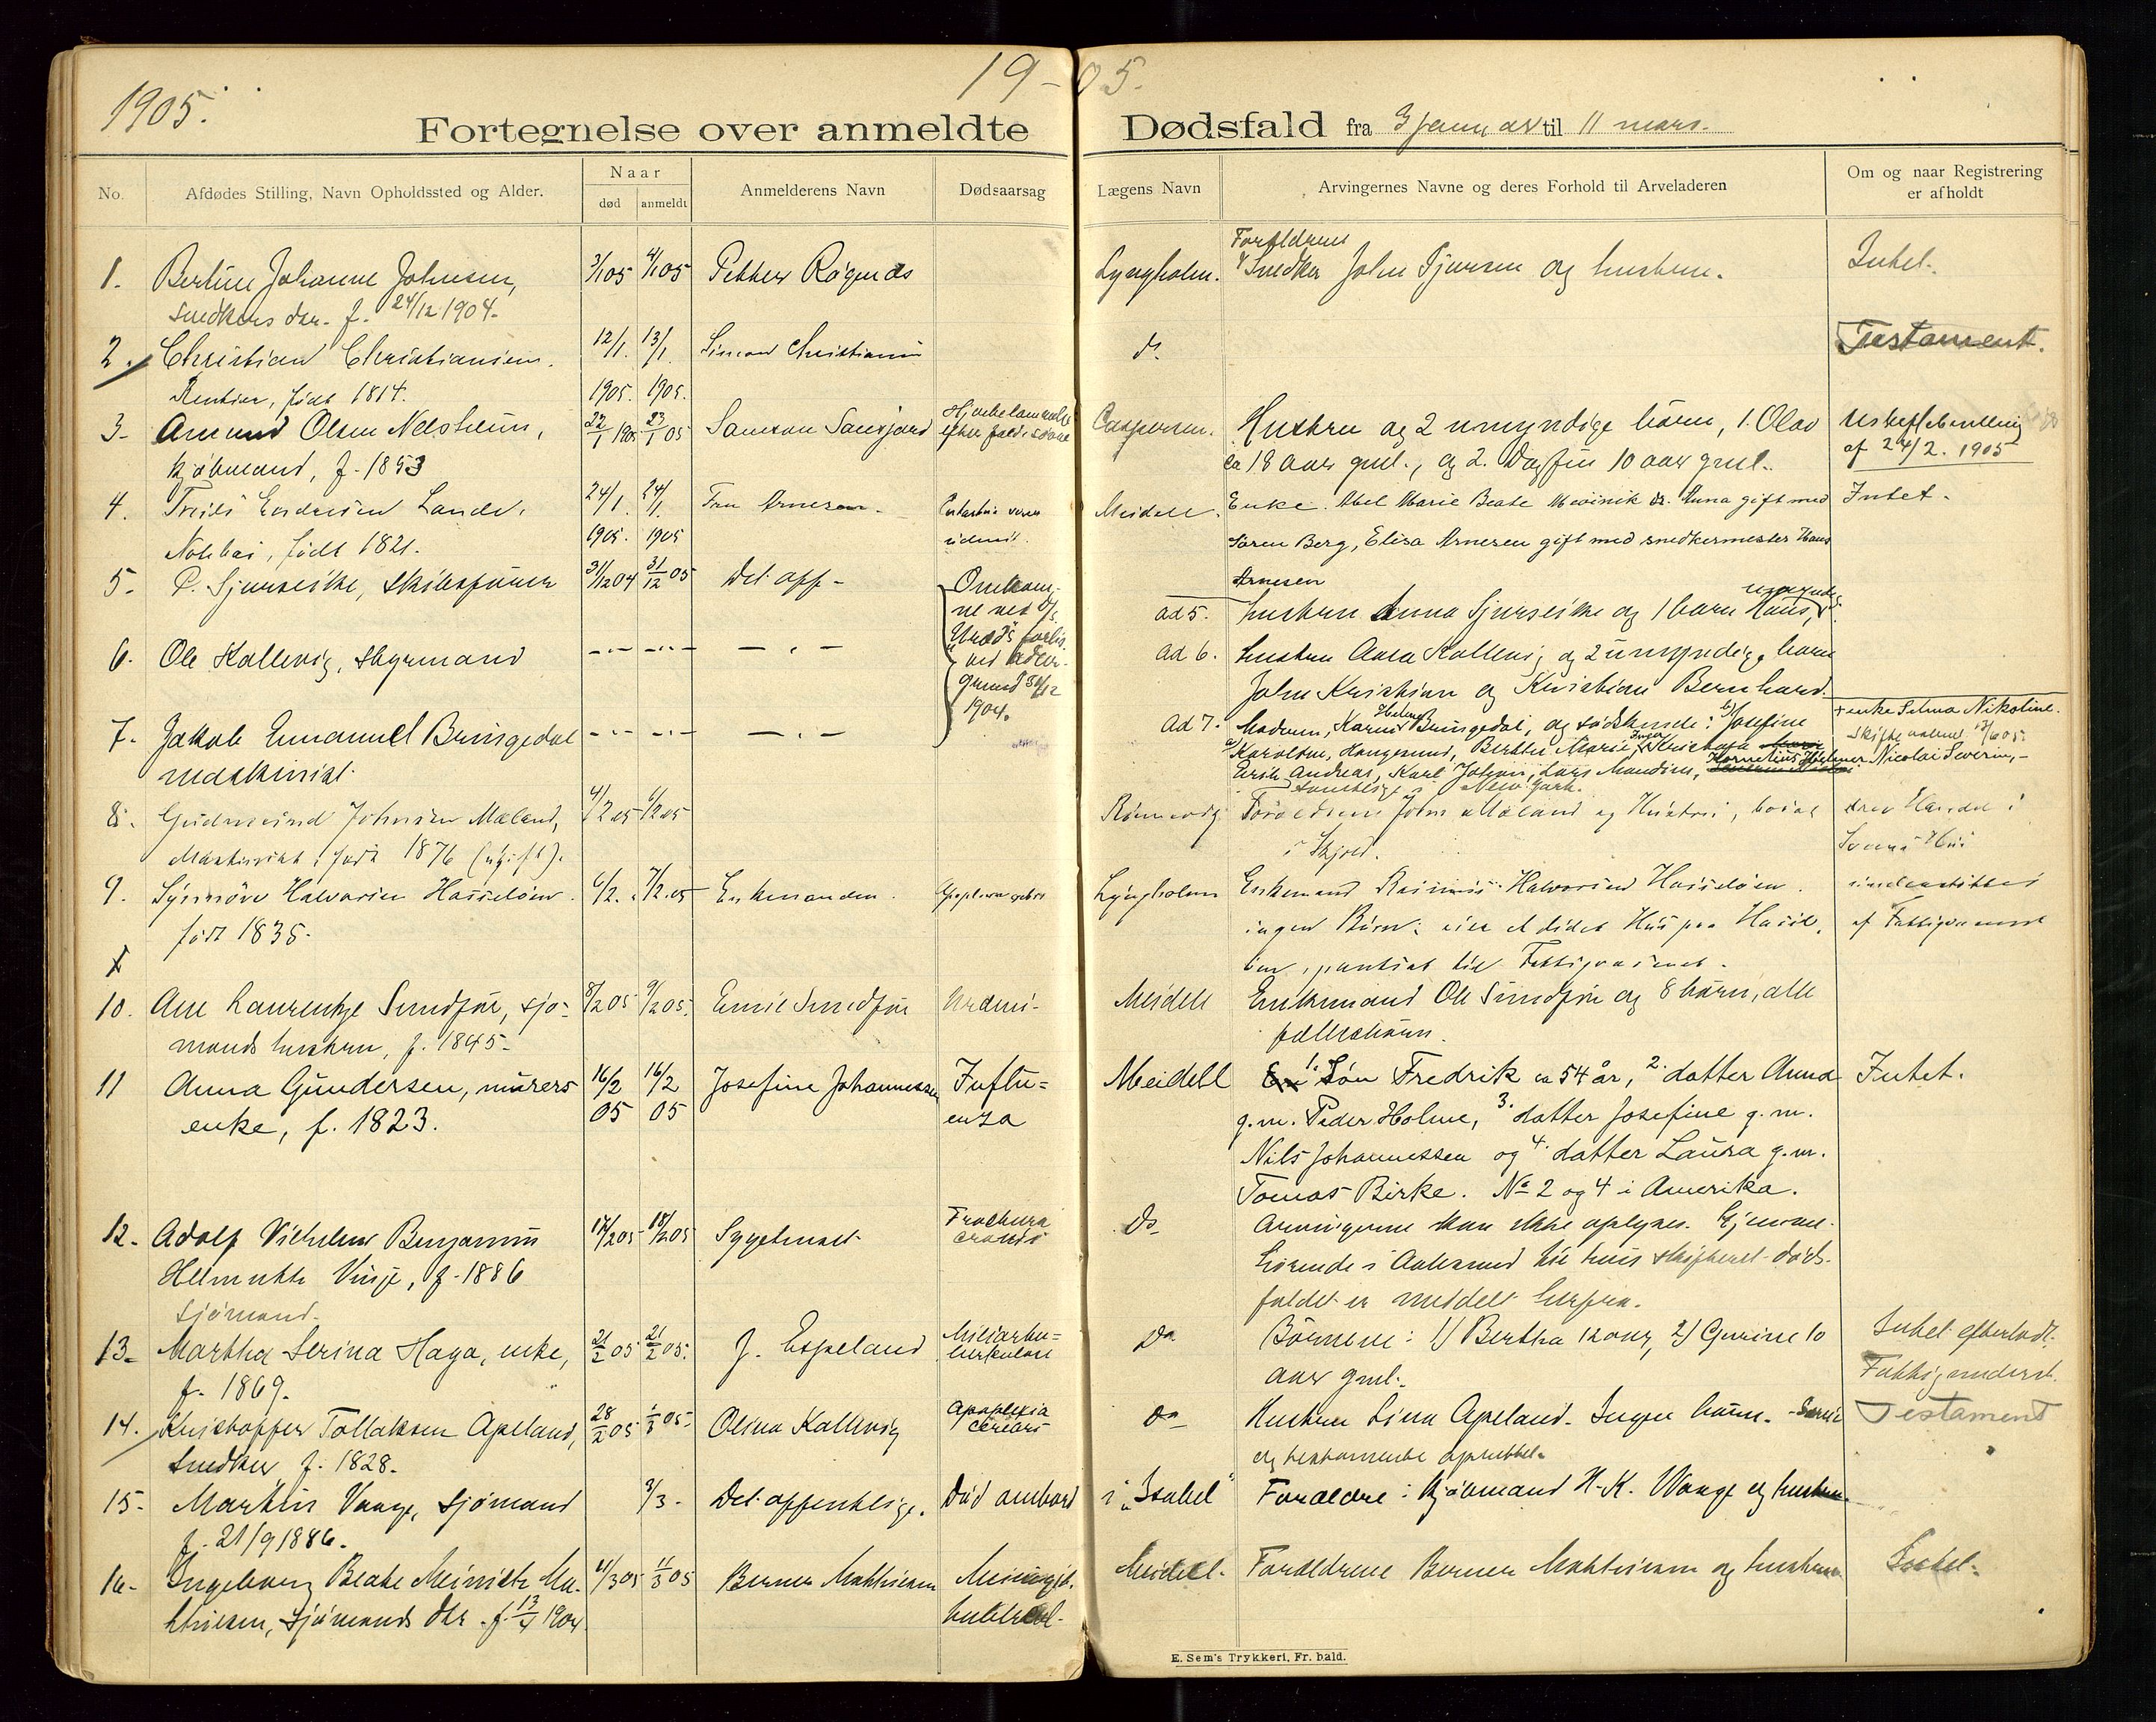 19-05.
1905.
Fortegnelse over anmeldte Dødsfald fra 3 januar til 11 mars.
No. Afdødes Stilling, Navn Opholdssted og Alder. Naar død anmeldt Anmelderens Navn Dødsaarsag Lægens Navn Arvingernes Navne og deres Forhold til Arveladeren Om og naar Registrering er afholdt
1. Bertine Johanne Johnsen, 3/1 05 4/1 05 Petther Røgenæs Lyngholm. Forældrene Snedker John Sjursen og hustru. Intet.
Snedkers dtr. f. 24/12 1904.
2. Christian Christiansen. 12/1. 13/1. Simon Christiansen do. Testament.
Rentier, født 1814. 1905. 1905.
3. Amund Olsen Nelsheim, 22/1 1905 23/1 05 Samson Hjertelammelse efter fald i søvne Caspersen. Hustru og 2 umyndige børn, 1. Olav
kjøbmand, f. 1853 ca 18 aar gml., og 2. Dagfin 10 aar gml. af 24/2. 1905
4. Endresen Lande. 24/1. 24/1. Fru Arnesen. Meidell. Enke. Abel Marie Beate Anna gift med Intet.
født 1821. 1905. 1905 Søren Berg, Elisa Arnesen gift med snedkermester Hans
Arnesen
5. P. Sjurseike, Skibsfører 31/12 04 31/12 05 Det off. Omkomne ved D/S Uræds forlis ved 31/12 1904. ad 5. hustru Anna Sjurseike og 1 barn Hans, umyndig.
6. Ole Kallevig, Styrmand ad 6. hustru Anna Kallevig og 2 umyndige børn
John Kristian og Kristian Bernhard.
7. Jakob Emanuel Bringedal ad 7. Moderen, Karen Helene Bringedal, og sødskende: Josefine + enke Selma Nikoline.
maskinist. Karoline, Haugesund, Berthe Marie, Inga Kristofa
Erik Andreas, Karl Johan, Lars Mandius, Kornelius Nicolai Severin,
samtlige i New York.
8. Gudmund Johnsen Mæland, 4/2 05 6/2 05 Rønnevig Forældrene John Mæland og Hustru, bosat drev Handel i
Maskinist, født 1876 (ugift). i Skjold. Svens Hus
9. Synnøve Halvorsen Hasseløen. 6/2. 7/2.05 Enkemanden. Lyngholm Enkemand Rasmus Halvorsen Hasseløen. understøttet
født 1835. ingen Børn; eier et lidet Hus paa Hassel- af Fattigvæsenet
øen, pantsat til Fattigvæsenet.
10. Ane Laurentze Sundfør, sjø- 8/2 05 9/2 05. Emil Sundfør Urami- Meidell Enkemand Ole Sundfør og 8 børn, alle
mands hustru, f. 1845. fællesbørn.
11 Anna Gundersen, murers 16/2 16/2 Josefine Johannessen Influ= Meidell 1. Søn Fredrik ca 54 år, 2. datter Anna Intet.
enke, f. 1823. 05 05 enza g.m. Peder Holme, 3. datter Josefine g.m.
Nils Johannessen og 4. datter Laura g.m.
Tomas Birke. No 2 og 4 i Amerika.
12. Adolf Vilhelm Benjamin 17/2 05 18/2 05 Sygehuset Fractura cranii do. Arvingerne kan ikke oplyses. Hjemme-
Helmuth Vinje, f. 1886 hørende i Aalesund til hvis skifteret døds-
sjømand. faldet er meddelt herfra.
13. Martha Serina Haga, enke, 21/2 05 21/2 05. J. Espeland Miliærtu= berkulose do Børnene: 1) Bertha 12 aar, 2) Gurine 10 Intet efterladt.
f. 1869. aar gml. Fattigunderst.
14. Kristoffer Tollaksen Apeland, 28/2 05 1/3 05. Olina Kallevig Apoplexia cerebri do Hustru Lina Apeland. Ingen børn. Testament
Snedker, f. 1828. og testamente oprettet.
15. Martin Vaage, sjømand 3/3. Det offentlige. Død ombord i "Isabel" Forældre: kjøbmand H. K. Waage og hustru.
f. 21/9 1886.
16. Ingeborg Beate Ma- 11/3 05 11/3 05 Berner Mathiesen Meningit. tuberkul. Meidell. Forældrene Berner Mathiesen og hustru Intet.
thiesen, Sjømands dtr. f. 13/4 1904
E. Sem's Trykkeri, Fr. hald.